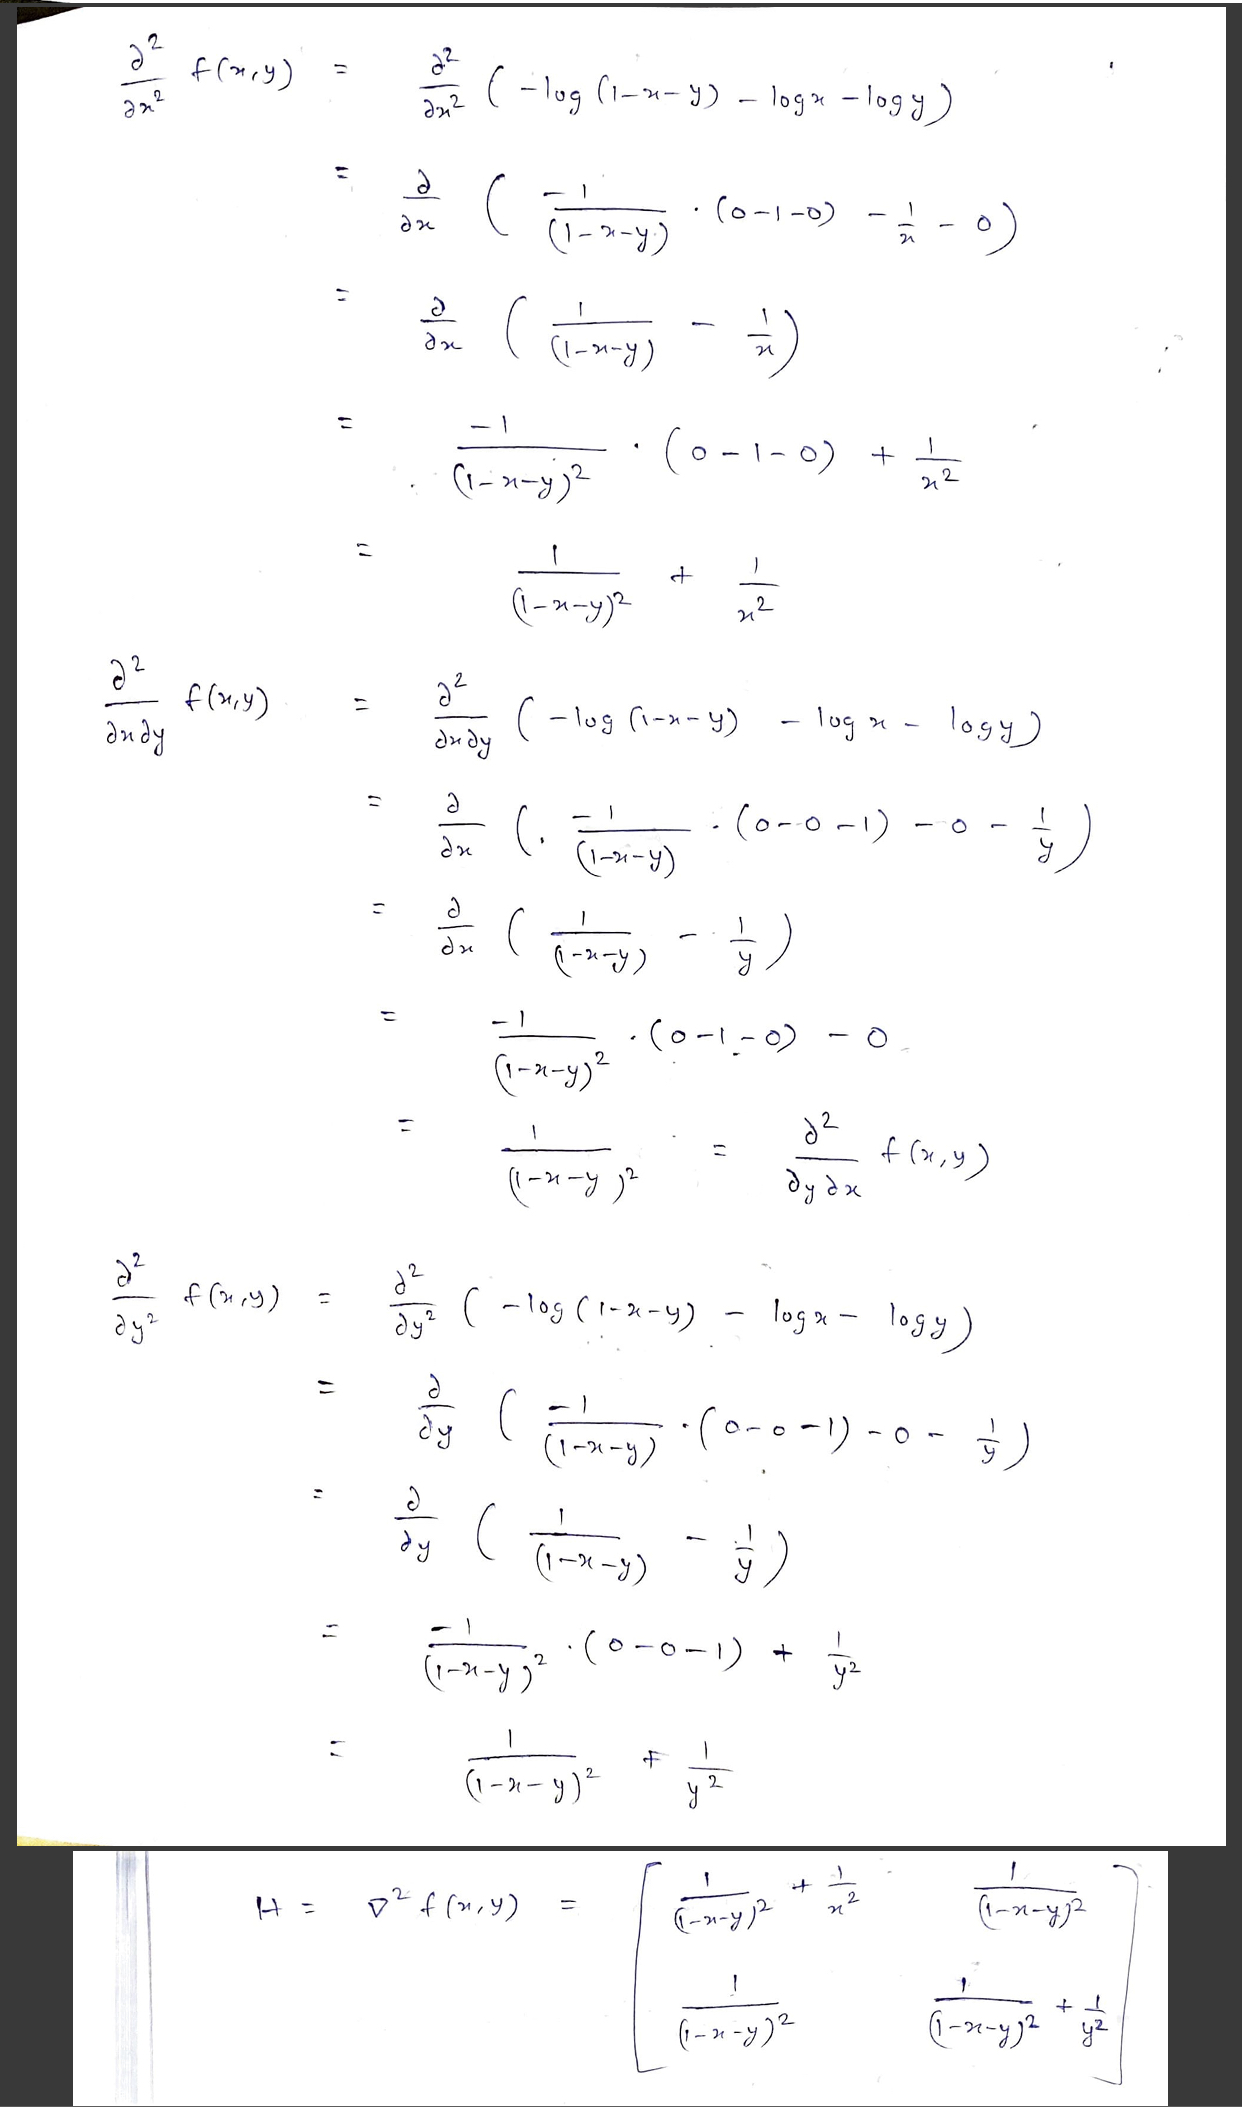 ∂²/∂x² f(x,y) = ∂²/∂x² (-log(1-x-y) - logx - logy)
= ∂/∂x ( -1/(1-x-y) · (0-1-0) - 1/x - 0)
= ∂/∂x ( 1/(1-x-y) - 1/x )
= -1/(1-x-y)² · (0-1-0) + 1/x²
= 1/(1-x-y)² + 1/x²
∂²/∂x∂y f(x,y) = ∂²/∂x∂y (-log(1-x-y) - logx - logy)
= ∂/∂x ( -1/(1-x-y) · (0-0-1) - 0 - 1/y )
= ∂/∂x ( 1/(1-x-y) - 1/y )
= -1/(1-x-y)² · (0-1-0) - 0
= 1/(1-x-y)² = ∂²/∂y∂x f(x,y)
∂²/∂y² f(x,y) = ∂²/∂y² (-log(1-x-y) - logx - logy)
= ∂/∂y ( -1/(1-x-y) · (0-0-1) - 0 - 1/y )
= ∂/∂y ( 1/(1-x-y) - 1/y )
= -1/(1-x-y)² · (0-0-1) + 1/y²
= 1/(1-x-y)² + 1/y²
H = ∇² f(x,y) = [ 1/(1-x-y)² + 1/x² 1/(1-x-y)²
1/(1-x-y)² 1/(1-x-y)² + 1/y² ]